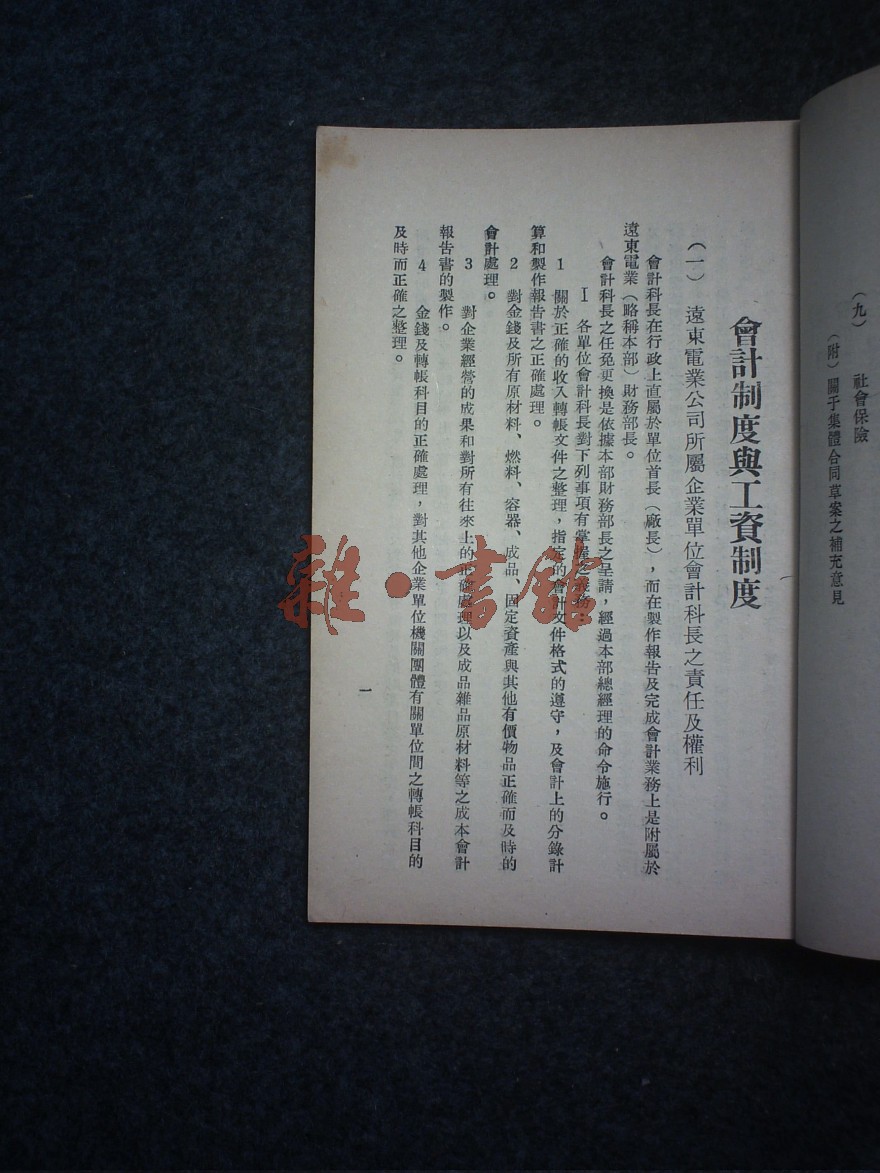 （九）　社會保險
（附）關于集體合同草案之補充意見
會計制度與工資制度
（一）　遠東電業公司所屬企業單位會計科長之責任及權利
會計科長在行政上直屬於單位首長（廠長），而在製作報告及完成會計業務上是附屬於
遠東電業（略稱本部）財務部長。
會計科長之任免更換是依據本部財務部長之呈請，經過本部總經理的命令施行。
Ⅰ　各單位會計科長對下列事項有掌握之義務：
1　關於正確的收入轉帳文件之整理，指定的會計文件格式的遵守，及會計上的分錄計
算和製作報告書之正確處理。
2　對金錢及所有原材料、燃料、容器、成品、固定資產與其他有價物品正確而及時的
會計處理。
3　對企業經營的成果和對所有往來上的正確處理以及成品雜品原材料等之成本會計
報告書的製作。
4　金錢及轉帳科目的正確處理，對其他企業單位機關團體有關單位間之轉帳科目的
及時而正確之整理。
一
雜·書館